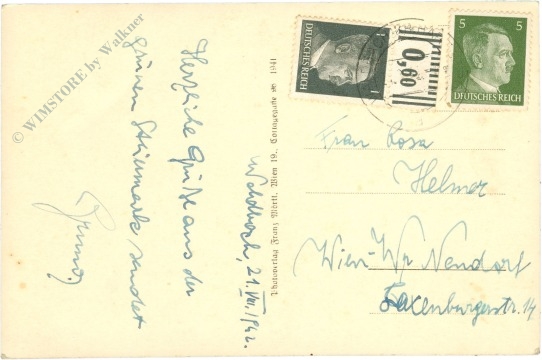 Waldbach, 21. VII. 1942.
Herzliche Grüße aus der
grünen Steiermark sendet
© WIMSTORE by Walkner
Photoverlag Franz Mörtl, Wien 19., Cottagegasse 1941
1
DEUTSCHES REICH
1
0,60
5 5
DEUTSCHES REICH
Frau Rosa
Helmer
Wien-Wr. Neudorf
Laxenburgerstr. 14